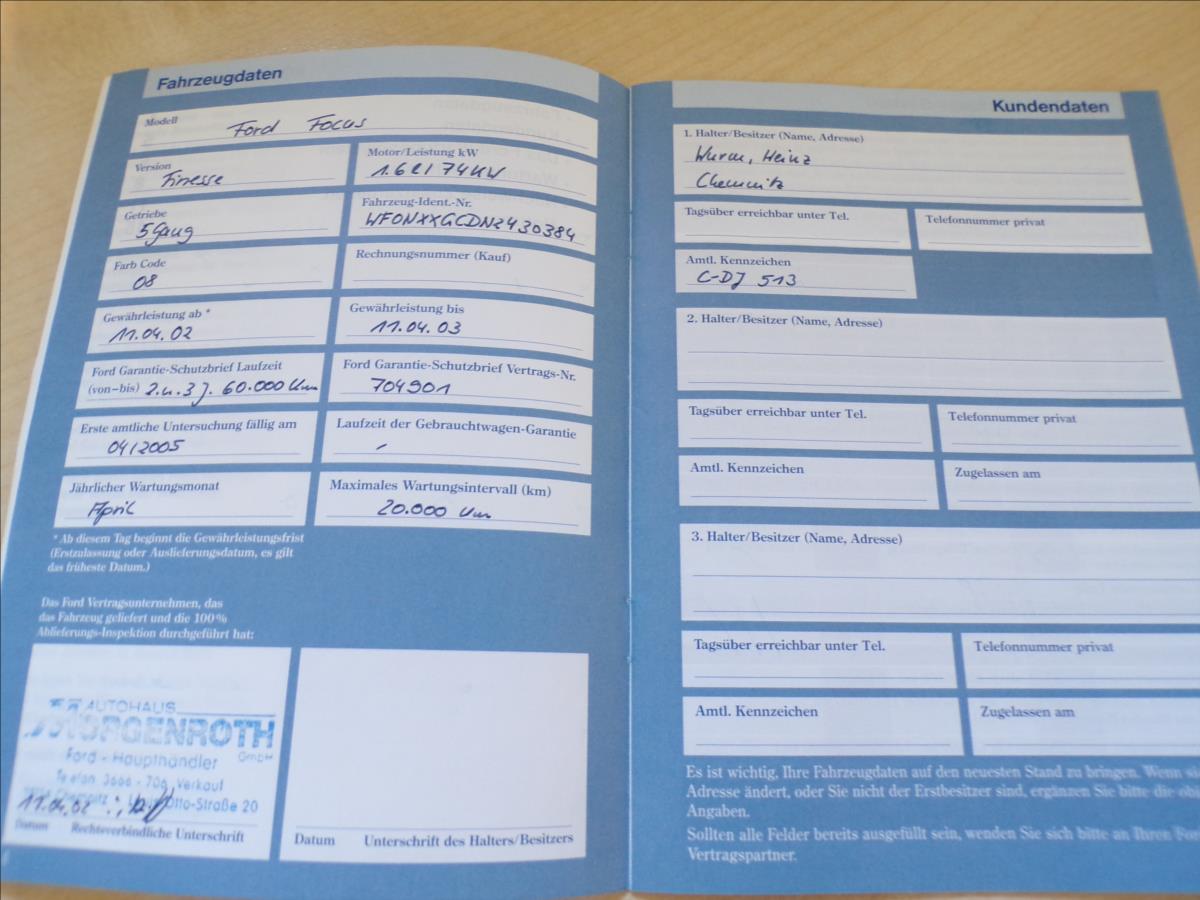 Fahrzeugdaten
Modell
Ford Focus
Version
Finesse
Motor/Leistung kW
1.6l / 74KW
Getriebe
5 Gang
Fahrzeug-Ident.-Nr.
WF0NXXGCDN2430384
Farb Code
08
Rechnungsnummer (Kauf)
Gewährleistung ab *
11.04.02
Gewährleistung bis
11.04.03
Ford Garantie-Schutzbrief Laufzeit
(von–bis) 2.u.3 J. 60.000 km
Ford Garantie-Schutzbrief Vertrags-Nr.
704901
Erste amtliche Untersuchung fällig am
04/2005
Laufzeit der Gebrauchtwagen-Garantie
-
Jährlicher Wartungsmonat
April
Maximales Wartungsintervall (km)
20.000 km
* Ab diesem Tag beginnt die Gewährleistungsfrist
(Erstzulassung oder Auslieferungsdatum, es gilt
das früheste Datum.)
Das Ford Vertragsunternehmen, das
das Fahrzeug geliefert und die 100%
Ablieferungs-Inspektion durchgeführt hat:
AUTOHAUS
MORGENROTH
GmbH
Ford - Haupthändler
Telefon 3666 - 706 Verkauf
Chemnitz Otto-Straße 20
11.04.02
Datum Rechtsverbindliche Unterschrift
Datum Unterschrift des Halters/Besitzers
Kundendaten
1. Halter/Besitzer (Name, Adresse)
Wurm, Heinz
Chemnitz
Tagsüber erreichbar unter Tel.
Telefonnummer privat
Amtl. Kennzeichen
C-DJ 513
2. Halter/Besitzer (Name, Adresse)
Tagsüber erreichbar unter Tel.
Telefonnummer privat
Amtl. Kennzeichen
Zugelassen am
3. Halter/Besitzer (Name, Adresse)
Tagsüber erreichbar unter Tel.
Telefonnummer privat
Amtl. Kennzeichen
Zugelassen am
Es ist wichtig, Ihre Fahrzeugdaten auf den neuesten Stand zu bringen. Wenn si
Adresse ändert, oder Sie nicht der Erstbesitzer sind, ergänzen Sie bitte die obi
Angaben.
Sollten alle Felder bereits ausgefüllt sein, wenden Sie sich bitte an Ihren Fo
Vertragspartner.